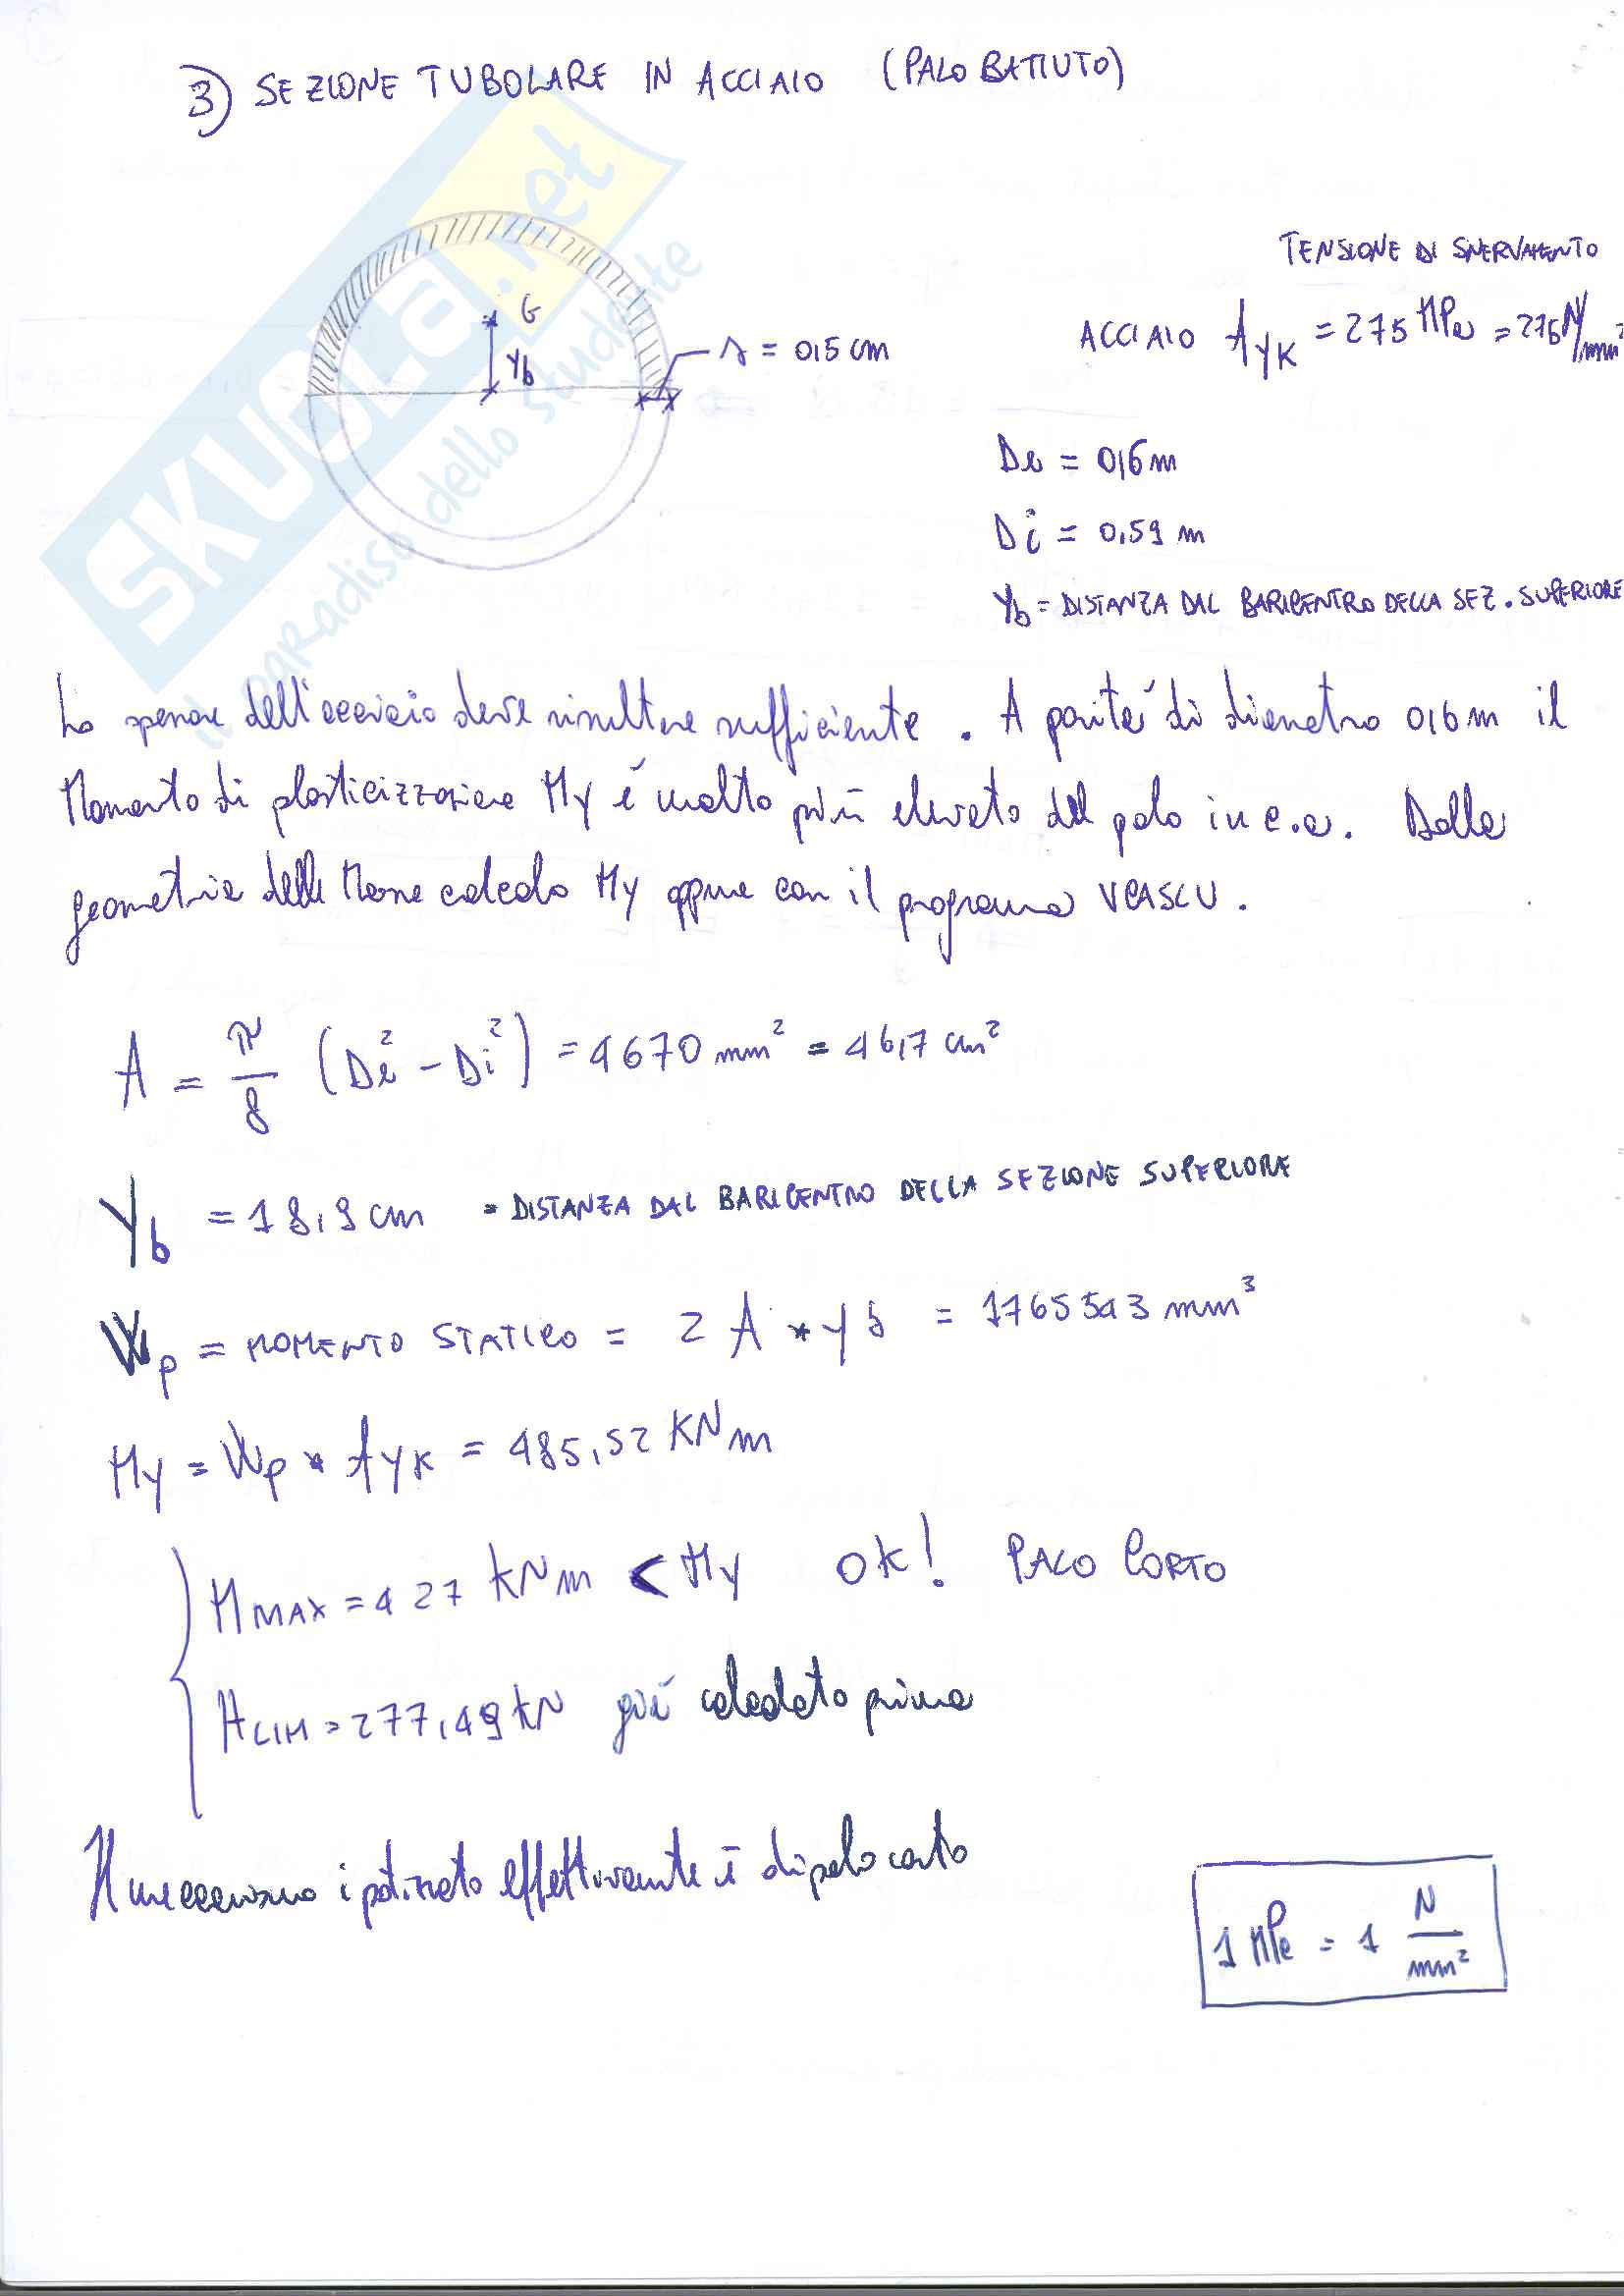 3) SEZIONE TUBOLARE IN ACCIAIO (PALO BATTUTO)
TENSIONE DI SNERVAMENTO
G
Yb
s = 0,5 cm
ACCIAIO fyk = 275 MPa = 275 N/mm²
De = 0,6 m
Di = 0,59 m
Yb = DISTANZA DAL BARICENTRO DELLA SEZ. SUPERIORE
SKUOLA.net
il paradiso dello studente
Lo spessore dell'acciaio deve risultare sufficiente. A parità di diametro 0,6 m il
Momento di plasticizzazione My è molto più elevato del palo in c.a. Dalla
geometria delle Masse calcolo My oppure con il programma VCASLU.
A = π/8 (De² - Di²) = 4670 mm² = 46,7 cm²
Yb = 18,9 cm = DISTANZA DAL BARICENTRO DELLA SEZIONE SUPERIORE
Wp = MOMENTO STATICO = 2 A * yb = 1765543 mm³
My = Wp * fyk = 485,52 KN m
MMAX = 427 kN m < My ok! PALO CORTO
HLIM = 277,49 kN già calcolato prima
Il meccanismo ipotizzato effettivamente è di palo corto
1 MPa = 1 N/mm²